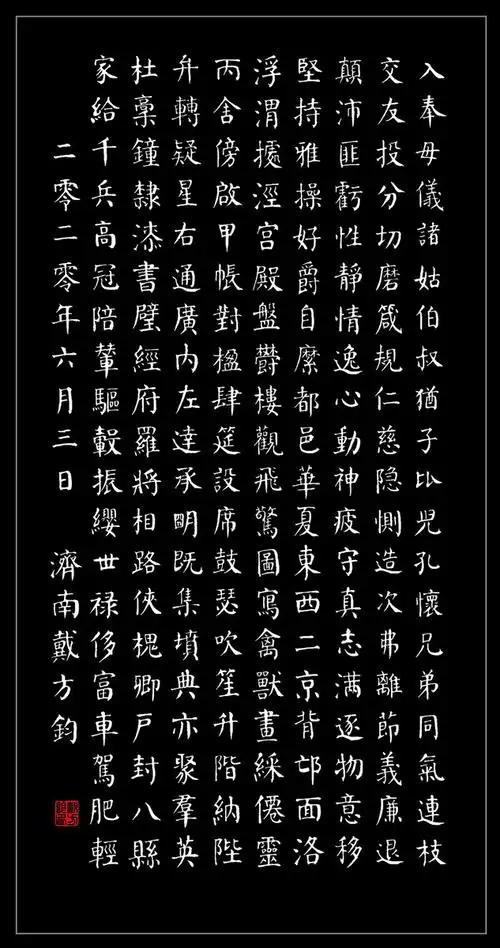 入奉母儀諸姑伯叔猶子比兒孔懷兄弟同氣連枝
交友投分切磨箴規仁慈隐惻造次弗離節義廉退
顛沛匪虧性靜情逸心動神疲守真志满逐物意移
堅持雅操好爵自縻都邑華夏東西二京背邙面洛
浮渭據涇宫殿盤欝樓觀飛驚圖寫禽獸畫綵僊靈
丙舍傍啟甲帳對楹肆筵設席鼓瑟吹笙升階納陛
弁轉疑星右通廣内左達承明既集墳典亦聚羣英
杜稾鐘隸漆書壁經府羅將相路俠槐卿户封八縣
家給千兵高冠陪輦驅轂振纓世禄侈富車駕肥輕
二零二零年六月三日 濟南戴方鈞